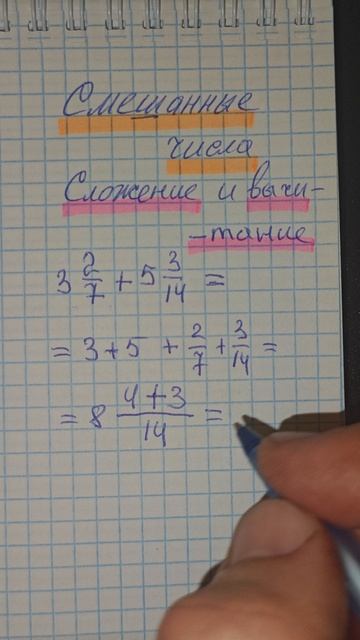 Смешанные
числа
Сложение и вычи-
-тание
3 2/7 + 5 3/14 =
= 3 + 5 + 2/7 + 3/14 =
= 8 (4+3)/14 =